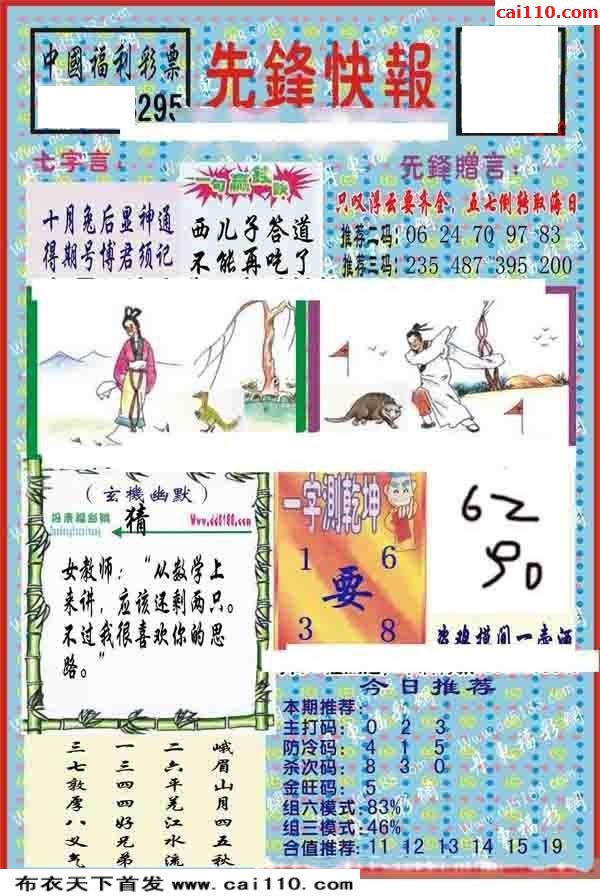 cai110.com
中國福利彩票
先鋒快報
295
七字言：
十月兔后显神通
得期号博君须记
一句贏錢訣
西儿子答道
不能再吃了
先鋒贈言：
只叹浮云要齐全，五七倒转取海日
推荐二码：06 24 70 97 83
推荐三码：235 487 395 200
（玄機幽默）
猜
Www.dd8188.com
女教师：“从数学上
来讲，应该还剩两只。
不过我很喜欢你的思
路。”
一字測乾坤
1 6
要
3 8
62
90
今日推荐
本期推荐：
主打码：0 2 3
防冷码：4 1 5
杀次码：8 3 0
金旺码：5
组六模式：83%
组三模式：46%
合值推荐：11 12 13 14 15 19
峨眉山月四五秋
二六平羌江水流
一三四四好兄弟
三七敦厚八义气
布衣天下首发 www.cai110.com